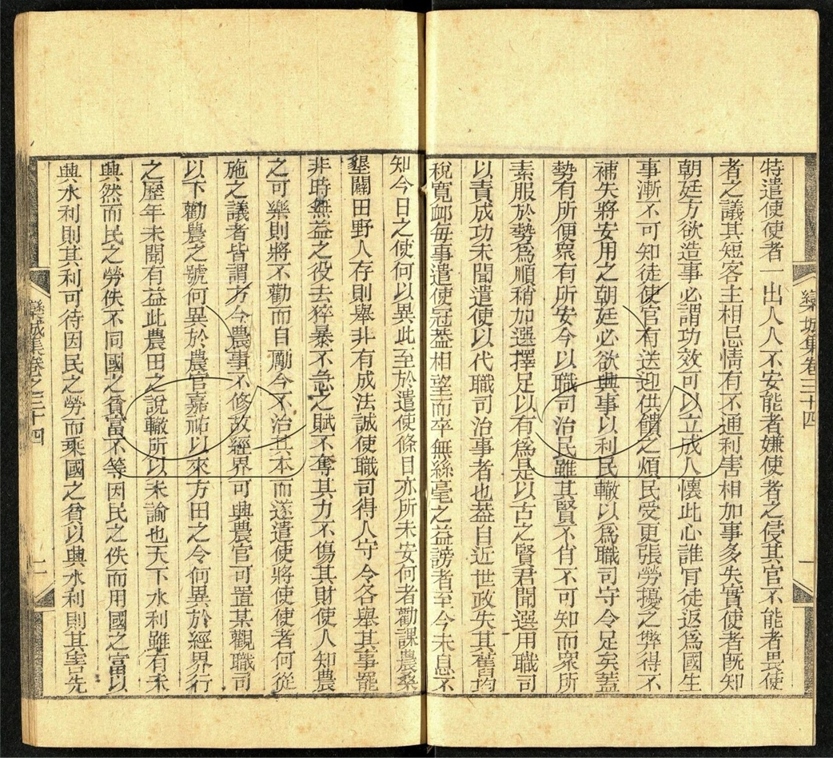 特遣使使者一出人人不安能者嫌使者之侵其官不能者畏使
者之議其短客主相忌情有不通利害相加事多失實使者旣知
朝廷方欲造事必謂功效可以立成人懷此心誰肯徒返爲國生
事漸不可知徒使官有送迎供饋之煩民受更張勞擾之弊得不
補失將安用之朝廷必欲興事以利民轍以爲職司守令足矣蓋
勢有所便衆有所安今以職司治民雖其賢不肖不可知而衆所
素服於勢爲順稍加選擇足以有爲是以古之賢君聞選用職司
以責成功未聞遣使以代職司治事者也葢自近世政失其舊均
稅寬邮每事遣使冠葢相望而卒無絲毫之益謗者至今未息不
知今日之使何以異此至於遣使條目亦所未安何者勸課農桑
墾闢田野人存則舉非有成法誠使職司得人守令各舉其事罷
非時無益之役去猝暴不急之賦不奪其力不傷其財使人知農
之可樂則將不勸而自勵今不治其本而遂遣使將使使者何從
施之議者皆謂方今農事不修故經界可興農官可置某觀職司
以下勸農之號何異於農官嘉祐以來方田之令何異於經界行
之歷年未聞有益此農田之說轍所以未諭也天下水利雖有未
興然而民之勞佚不同國之貧富不等因民之佚而用國之富以
興水利則其利可待因民之勞而乘國之貧以興水利則其害先
欒城集卷三十四
一
欒城集卷之三十四
二